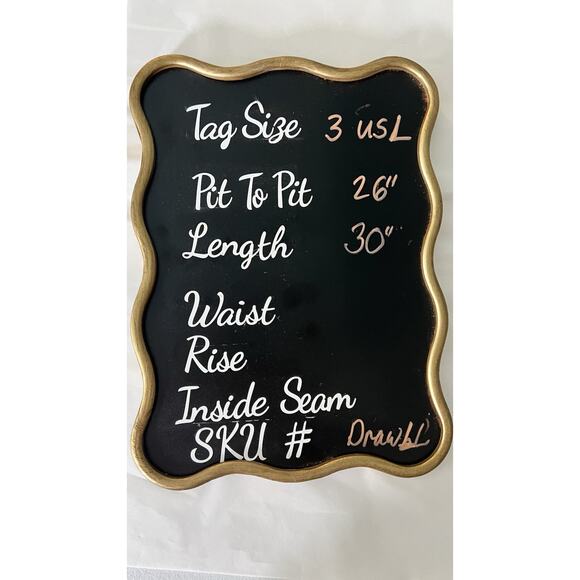 Tag Size 3 USL
Pit To Pit 26"
Length 30"
Waist
Rise
Inside Seam
SKU #